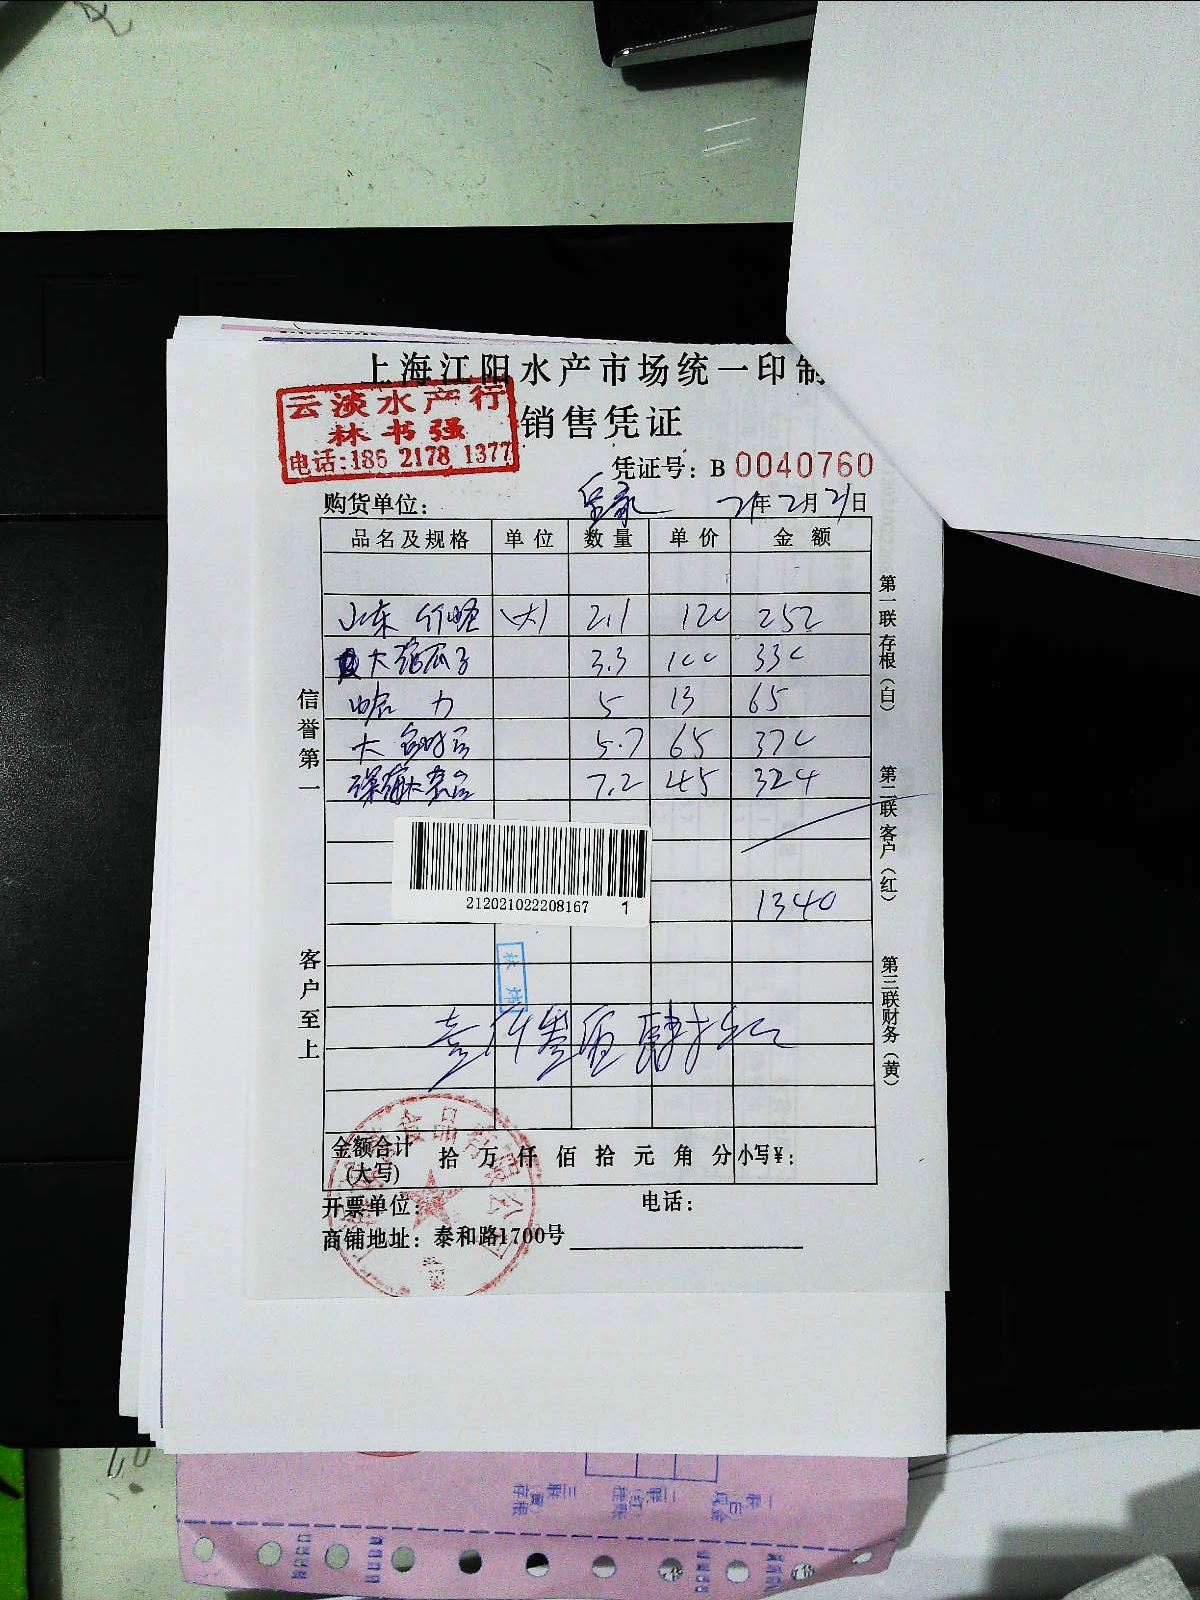 上海江阳水产市场统一印制
云淡水产行
林书强
电话:186 2178 1377
销售凭证
凭证号：B 0040760
购货单位： 21年2月21日
品名及规格 单位 数量 单价 金额
山东竹蛏 (大) 2.1 120 252
大 瓜子 3.3 100 330
哈力 5 13 65
大 5.7 65 370
7.2 45 324
212021022208167 1
1340
壹仟叁佰肆拾元
金额合计(大写) 拾 万 仟 佰 拾 元 角 分 小写¥：
开票单位： 电话：
商铺地址：泰和路1700号
食品有限公司
信誉第一
客户至上
第一联存根（白）
第二联客户（红）
第三联财务（黄）